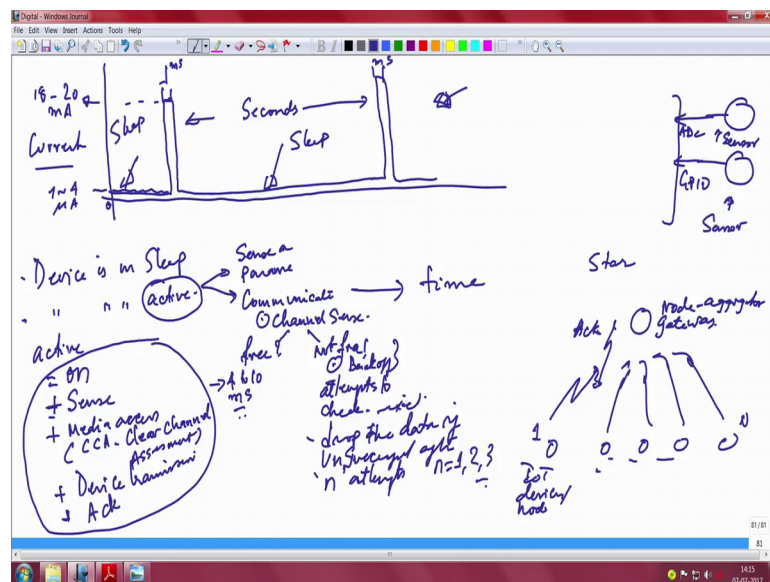 Digital - Windows Journal
File Edit View Insert Actions Tools Help
ms
ms
18-20
mA
Sleep
Seconds
Current
Sleep
1~4
μA
0
ADC
Sensor
GPIO
Sensor
. Device is in Sleep
. " " " active.
Sense a
Communicate
time
Channel Sense.
free?
Not free
Backoff
attempts to
check
- drop the data if
'n' attempts n=1,2,3
4 to 10
ms
active
= ON
+ Sense
+ Media access
(CCA - Clear Channel
Assessment)
+ Device transmission
+ Ack
Star
Ack
Node-aggregator
gateway
1
0 0 0 0 0
n
IoT
device/
node
81/81
81
14:15
07-07-2017